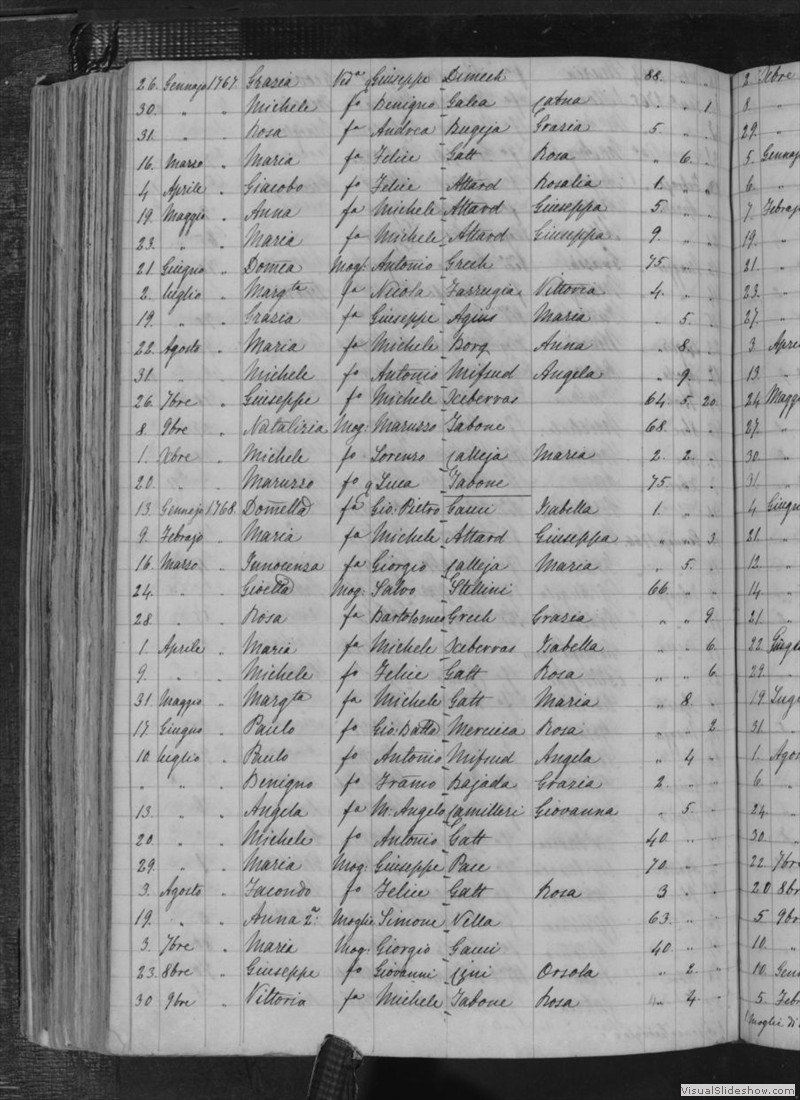 26. Gennajo 1767. Grazia Ved.a q Giuseppe Dimech 88. . .
30. " " Michele fo Benigno Galea Catna . . 1
31. " " Rosa fa Andrea Bugeja Grazia 5. . .
16. Marzo " Maria fa Felice Gatt Rosa " 6. .
4 Aprile " Giacobo fo Felice Attard Rosalia 1. " "
19. Maggio " Anna fa Michele Attard Giuseppa 5. " .
23. " " Maria fa Michele Attard Giuseppa 9. " .
21. Giugno " Domca Mogl: Antonio Grech 75. . .
2. luglio " Margta fa Nicola Farrugia Vittoria 4. . .
19. " " Grazia fa Giuseppe Agius Maria " 5. .
22. Agosto " Maria fa Michele Borg Anna . 8. .
31. " " Michele fo Antonio Mifsud Angela " 9. .
26. 7bre " Giuseppe fo Michele Xeberras 64. 5. 20.
8. 9bre " Natalizia Mog: Maruzzo Tabone 68. . .
1. Xbre " Michele fo Lorenzo Calleja Maria 2. 2. .
20. " " Maruzzo fo q Luca Tabone 75. . .
13. Gennajo 1768. Dometta fa Gio: Pietro Cauci Isabella 1. " .
9. Febrajo " Maria fa Michele Attard Giuseppa " " 3.
16. Marzo " Innocenza fa Giorgio Calleja Maria . 5. .
24. " " Gioetta Mog: Salvo Stellini 66. . .
28. " " Rosa fa Bartolomeo Grech Grazia " " 9.
1. Aprile " Maria fa Michele Xeberras Isabella . . 6.
9. " " Michele fo Felice Gatt Rosa " " 6.
31. Maggio " Margta fa Michele Gatt Maria " 8. .
17. Giugno " Paulo fo Gio: Batta Mercieca Rosa . . 2.
10. luglio " Paulo fo Antonio Mifsud Angela " 4 .
" " " Benigno fo Franco Bajada Grazia 2 " .
13. " " Angela fa M. Angelo Camilleri Giovanna " 5. .
20. " " Michele fo Antonio Gatt 40. " .
29. " " Maria Mog: Giuseppe Pace 70. . .
3. Agosto " Facondo fo Felice Gatt Rosa 3 . .
19. " " Anna 2a: Moglie Simone Vella 63. " .
3. 7bre " Maria Mog: Giorgio Gauci 40 " "
23. 8bre " Giuseppe fo Giovanni Cini Orsola " 2. .
30 9bre " Vittoria fa Michele Tabone Rosa " 4. .
2 Febre
8. "
29. "
5. Gennajo
6. "
7. Febrajo
19. "
21. "
23. "
27. "
3 April
13 "
24 Maggi
27. "
30. "
31. "
4 Giugn
21. "
12. "
14. "
21. "
22.
29. "
19
31. "
1. Agos
6. "
24. "
30. "
22. 7bre
20 8br
5 9br
10. "
10. Gen
5. Feb
Moglie di
VisualSlideshow.com